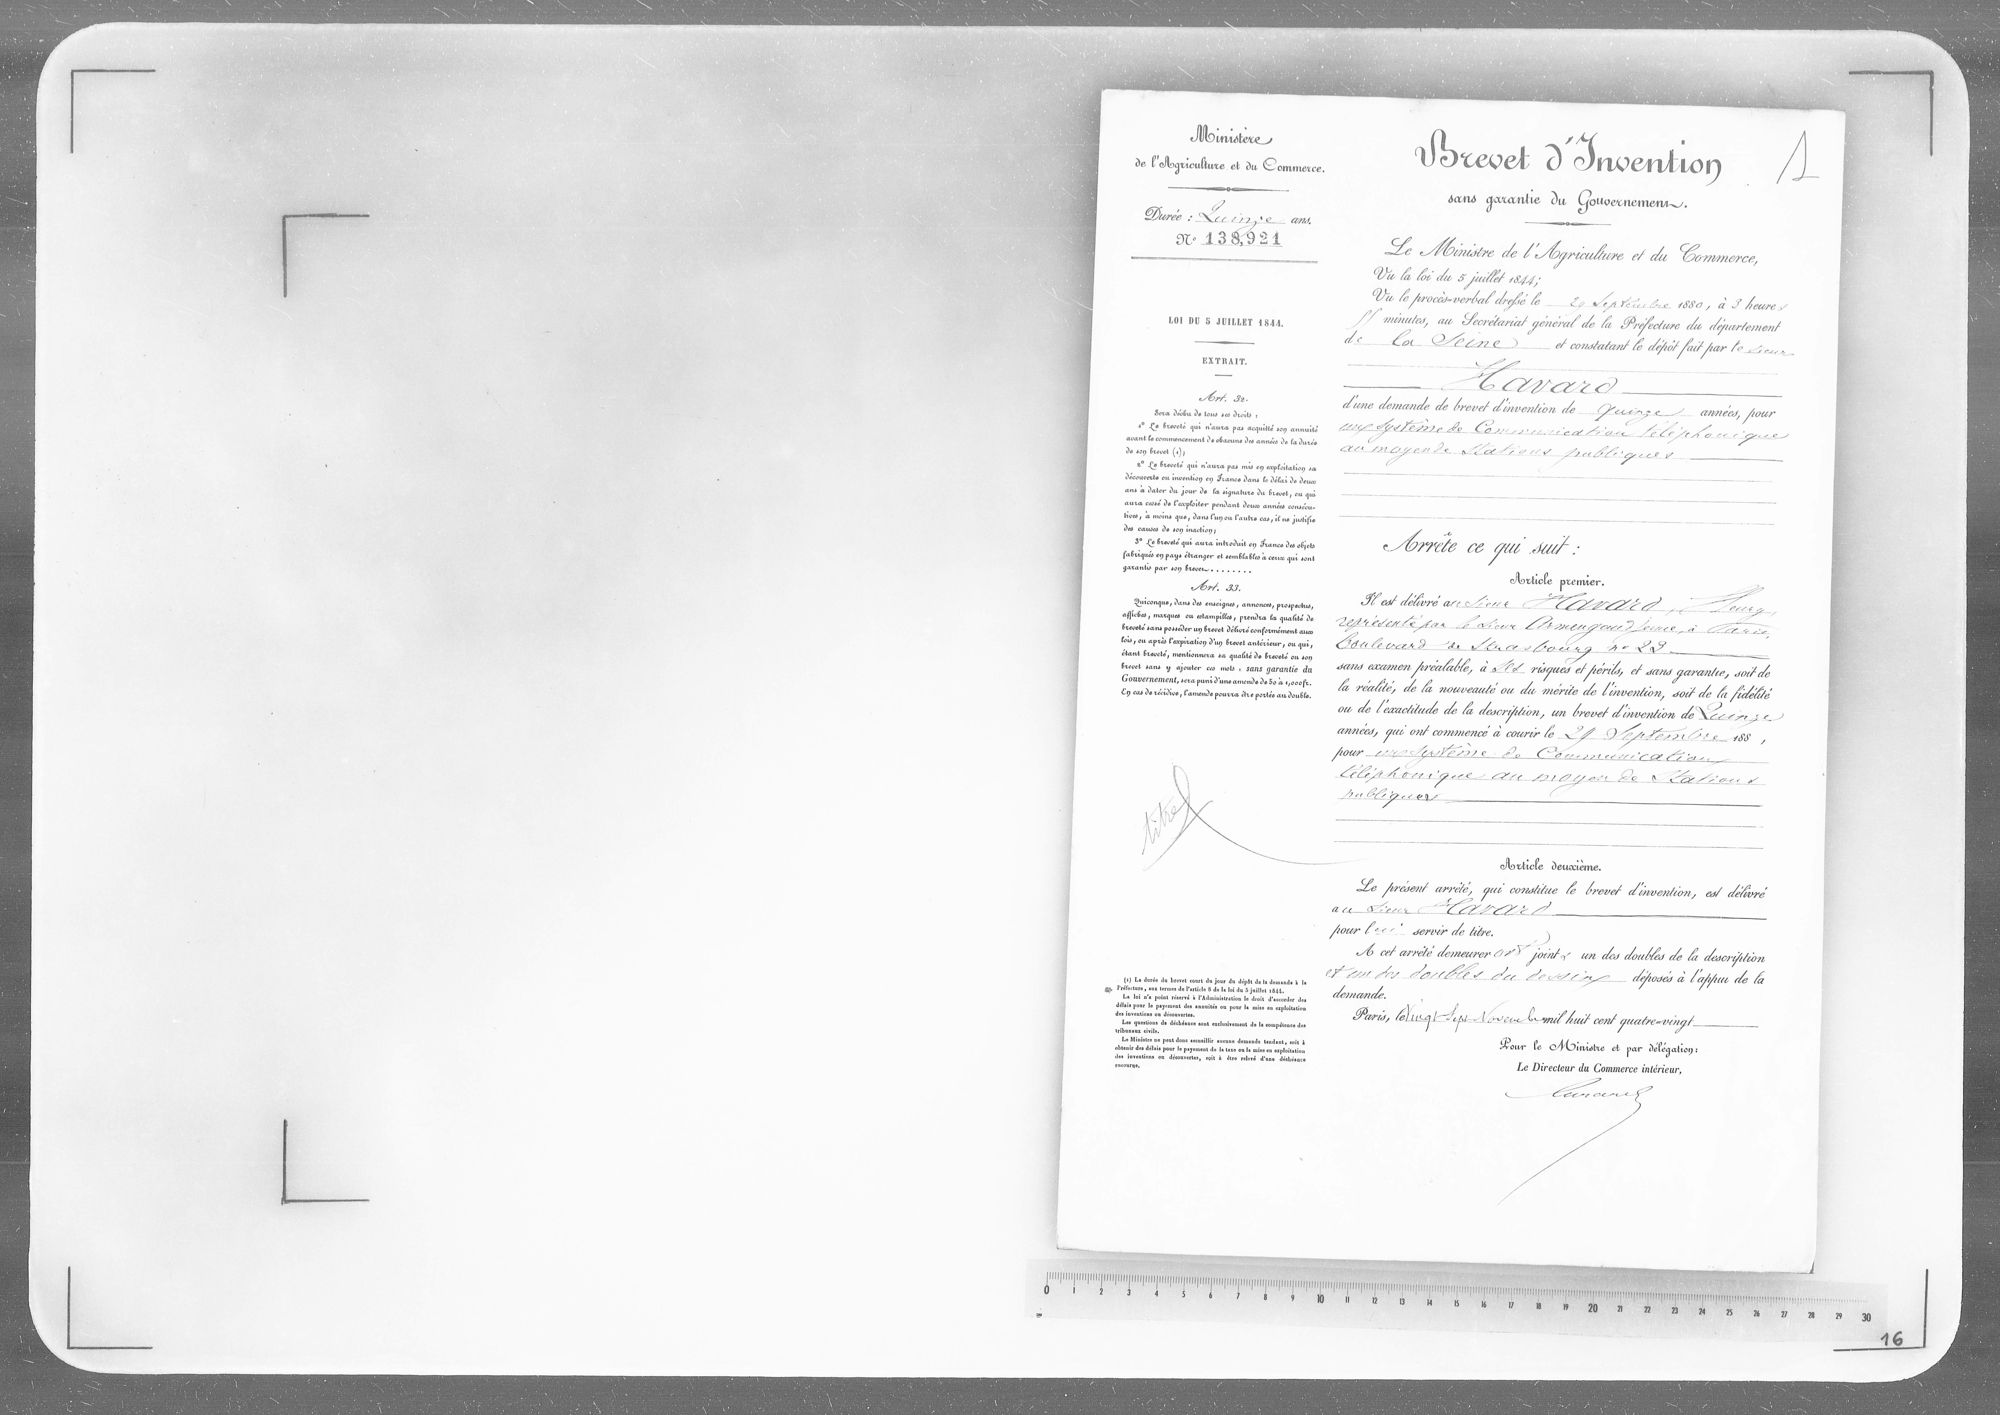 Ministère
de l'Agriculture et du Commerce.
Durée : Quinze ans.
N° 138,921
LOI DU 5 JUILLET 1844.
EXTRAIT.
Art. 32.
Sera déchu de tous ses droits :
1° Le breveté qui n'aura pas acquitté son annuité
avant le commencement de chacune des années de la durée
de son brevet (1);
2° Le breveté qui n'aura pas mis en exploitation sa
découverte ou invention en France dans le délai de deux
ans à dater du jour de la signature du brevet, ou qui
aura cessé de l'exploiter pendant deux années consécu-
tives, à moins que, dans l'un ou l'autre cas, il ne justifie
des causes de son inaction;
3° Le breveté qui aura introduit en France des objets
fabriqués en pays étranger et semblables à ceux qui sont
garantis par son brevet........
Art. 33.
Quiconque, dans des enseignes, annonces, prospectus,
affiches, marques ou estampilles, prendra la qualité de
breveté sans posséder un brevet délivré conformément aux
lois, ou après l'expiration d'un brevet antérieur, ou qui,
étant breveté, mentionnera sa qualité de breveté ou son
brevet sans y ajouter ces mots, sans garantie du
Gouvernement, sera puni d'une amende de 50 à 1,000 fr.
En cas de récidive, l'amende pourra être portée au double.
titre
(1) La durée du brevet court du jour du dépôt de la demande à la
Préfecture, aux termes de l'article 8 de la loi du 5 juillet 1844.
La loi n'a point réservé à l'Administration le droit d'accorder des
délais pour le payement des annuités ou pour la mise en exploitation
des inventions ou découvertes.
Les questions de déchéance sont exclusivement de la compétence des
tribunaux civils.
Le Ministre ne peut donc accueillir aucune demande tendant, soit à
obtenir des délais pour le payement de la taxe ou la mise en exploitation
des inventions ou découvertes, soit à être relevé d'une déchéance
encourue.
Brevet d'Invention
sans garantie du Gouvernement.
Le Ministre de l'Agriculture et du Commerce,
Vu la loi du 5 juillet 1844;
Vu le procès-verbal dressé le 29 Septembre 1880, à 3 heures
minutes, au Secrétariat général de la Préfecture du département
de la Seine et constatant le dépôt fait par le sieur
Havard
d'une demande de brevet d'invention de quinze années, pour
un Système de Communication téléphonique
au moyen de Stations publiques
Arrête ce qui suit :
Article premier.
Il est délivré au Sieur Havard, Henry,
représenté par le Sieur Armengaud jeune, à Paris,
Boulevard de Strasbourg n° 23
sans examen préalable, à ses risques et périls, et sans garantie, soit de
la réalité, de la nouveauté ou du mérite de l'invention, soit de la fidélité
ou de l'exactitude de la description, un brevet d'invention de Quinze
années, qui ont commencé à courir le 29 Septembre 188 ,
pour un Système de Communication
téléphonique au moyen de Stations
publiques
Article deuxième.
Le présent arrêté, qui constitue le brevet d'invention, est délivré
au Sieur Havard
pour lui servir de titre.
A cet arrêté demeureront joints un des doubles de la description
et un des doubles du dessin déposés à l'appui de la
demande.
Paris, le Vingt Sept Novembre mil huit cent quatre-vingt
Pour le Ministre et par délégation:
Le Directeur du Commerce intérieur,
0 1 2 3 4 5 6 7 8 9 10 11 12 13 14 15 16 17 18 19 20 21 22 23 24 25 26 27 28 29 30
16